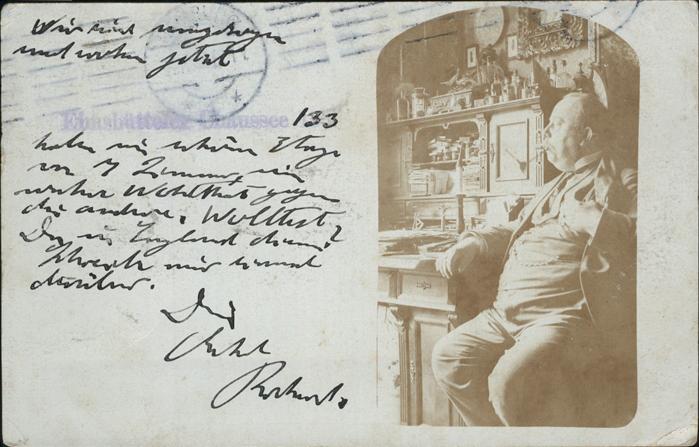 Wir sind umgezogen
und wohnen jetzt
Eimsbütteler Chaussee 133
haben eine schöne Etage
von 7 Zimmern, eine
wahre Wohlthat gegen
die andere. Wolltest
Du in England
Schreib mir einmal
darüber.
Dein
Onkel